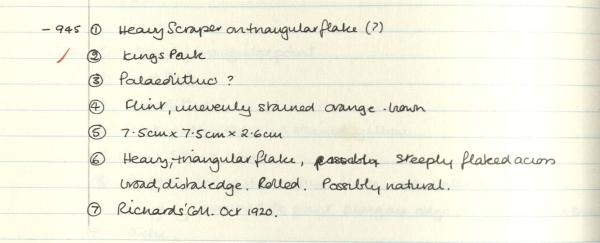 - 945 ① Heavy Scraper on triangular flake (?)
② Kings Park
③ Palaeolithic ?
④ Flint, unevenly stained orange-brown
⑤ 7.5cm x 7.5cm x 2.6cm
⑥ Heavy, triangular flake, possibly steeply flaked across
broad, distal edge. Rolled. Possibly natural.
⑦ Richards' Coll. Oct 1920.